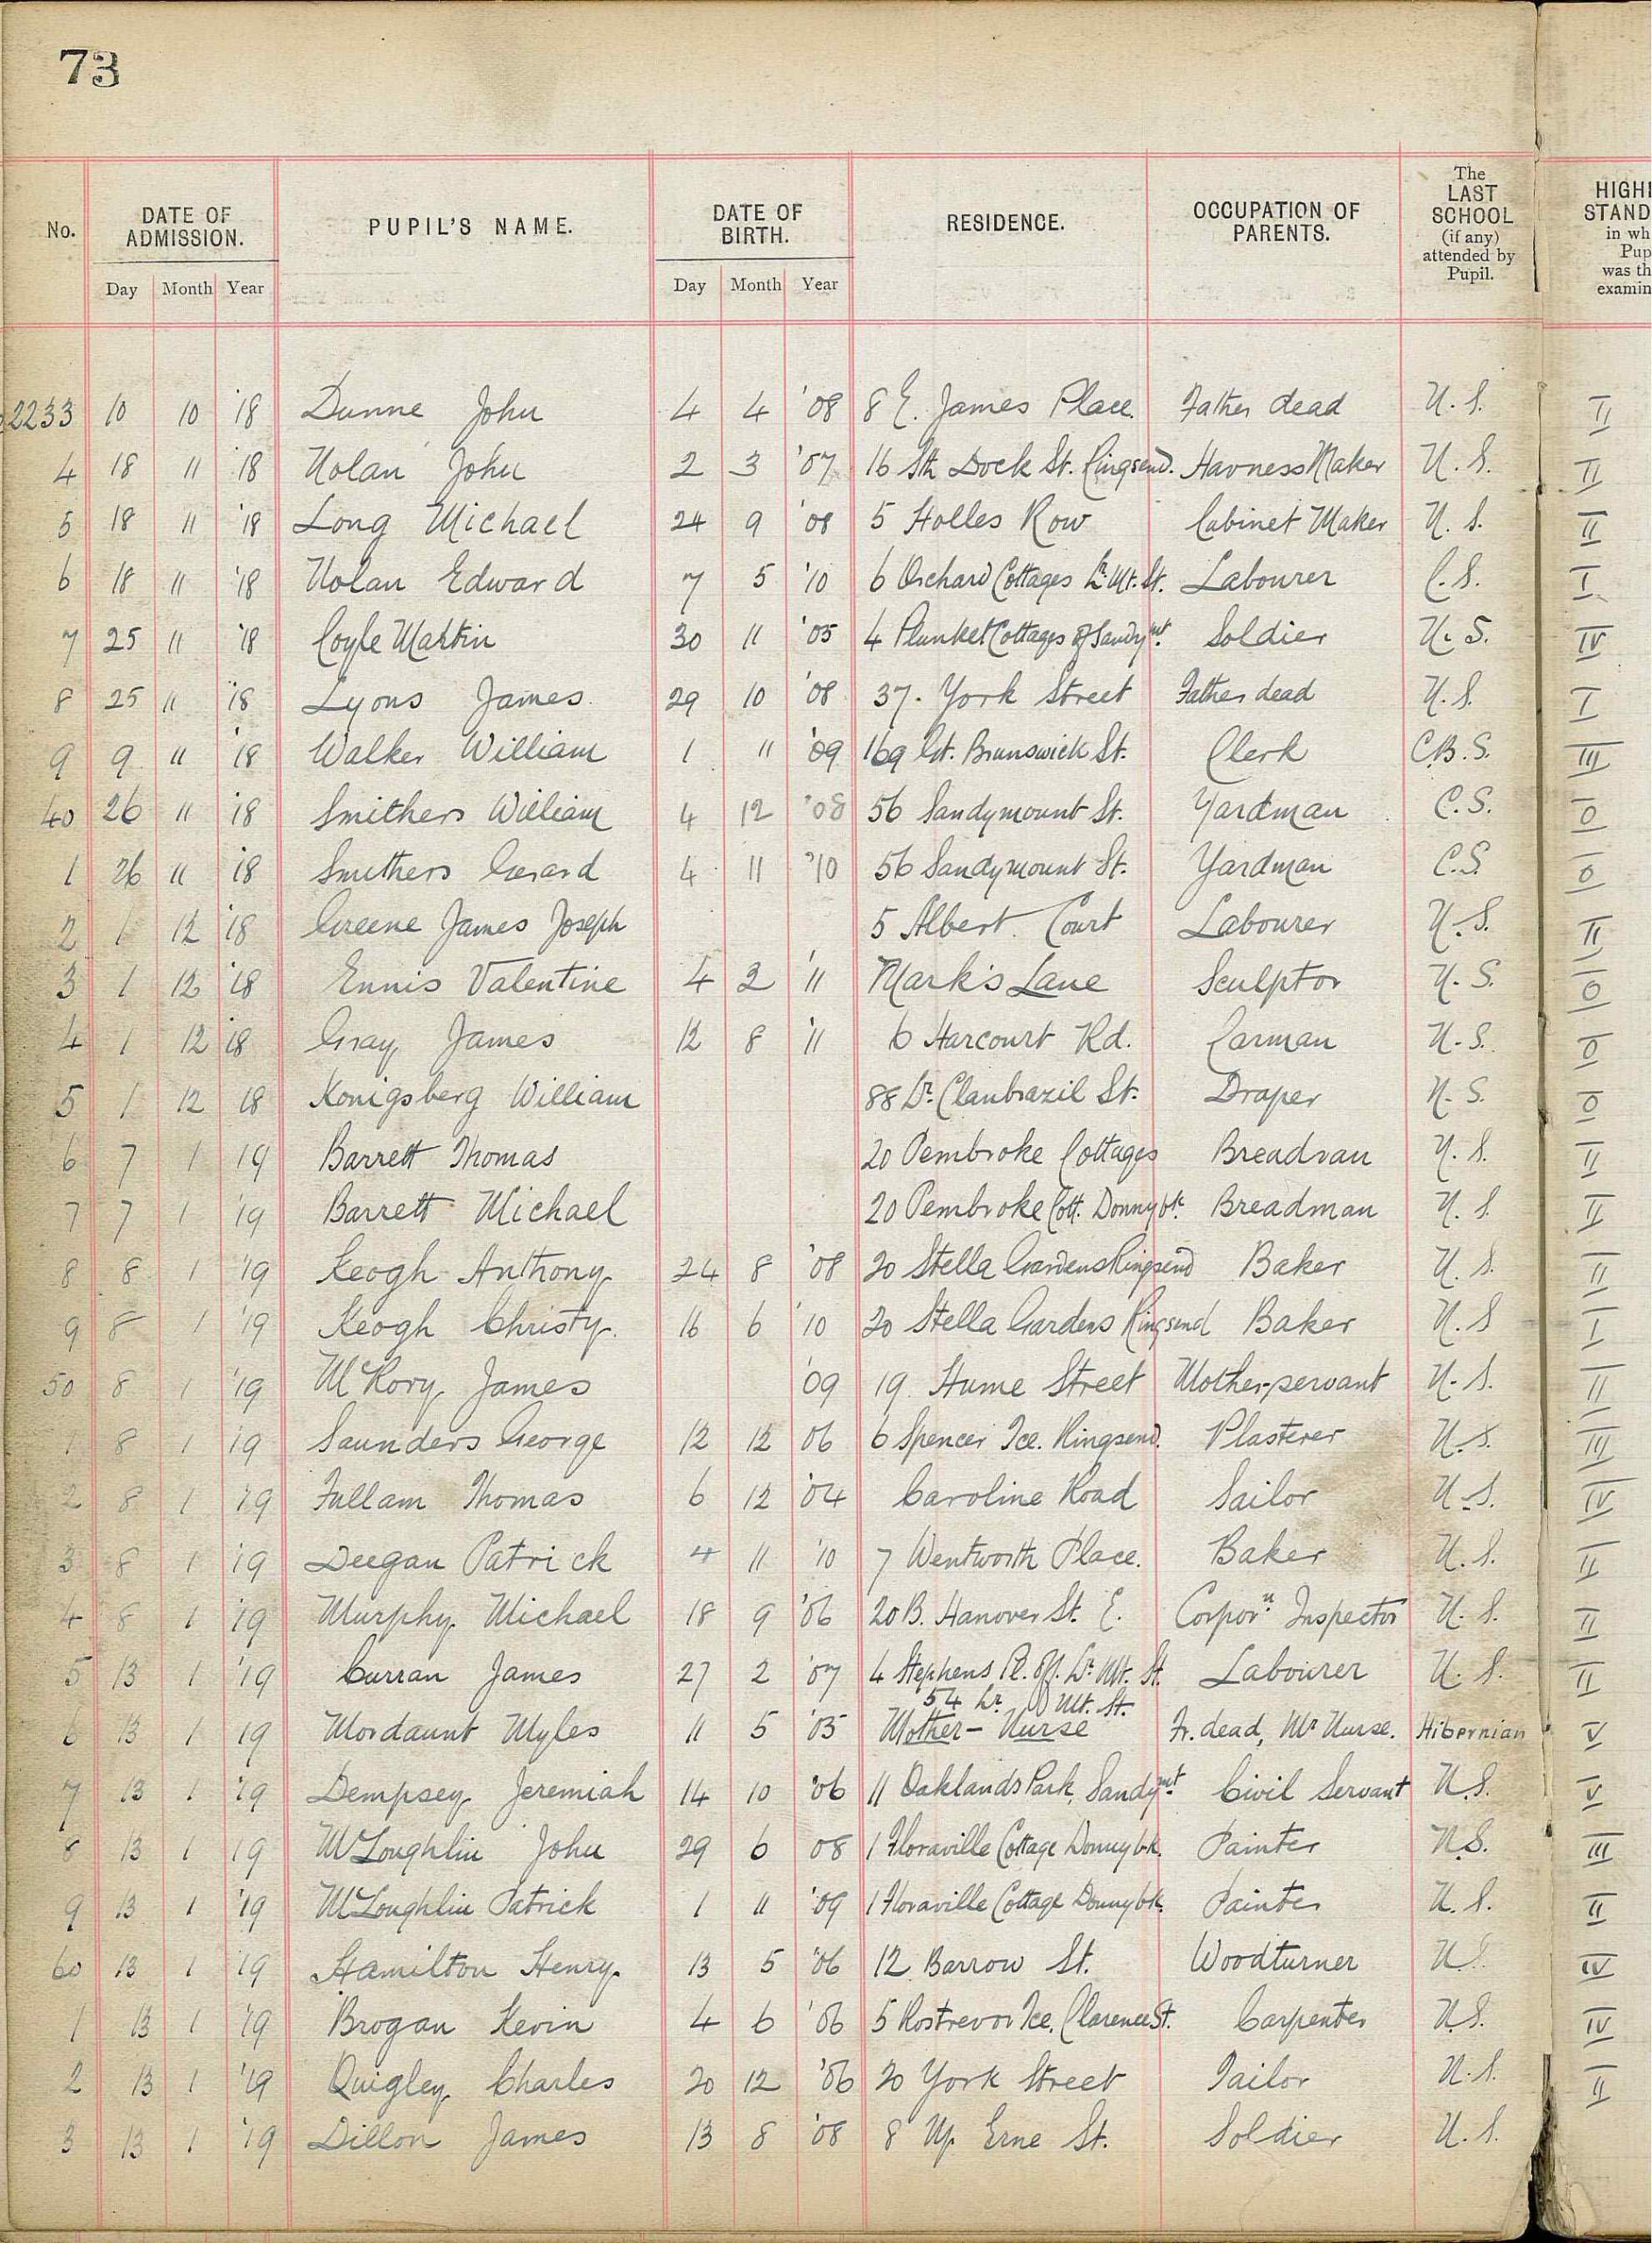 73
No. DATE OF ADMISSION. PUPIL'S NAME. DATE OF BIRTH. RESIDENCE. OCCUPATION OF PARENTS. The LAST SCHOOL (if any) attended by Pupil. HIGH STAND in wh Pup was th examin
Day Month Year Day Month Year
2233 10 10 '18 Dunne John 4 4 '08 8 E. James Place. Father dead N. S. II
4 18 11 '18 Nolan John 2 3 '07 16 Sth Dock St. Ringsend. Harness Maker N. S. II
5 18 11 '18 Long Michael 24 9 '08 5 Holles Row Cabinet Maker N. S. II
6 18 11 '18 Nolan Edward 7 5 '10 6 Orchard Cottages Lr. Mt. St. Labourer C. S. I
7 25 11 '18 Coyle Martin 30 11 '05 4 Plunket Cottages Sandymt. Soldier N. S. IV
8 25 11 '18 Lyons James. 29 10 '08 37. York Street Father dead N. S. I
9 9 11 '18 Walker William 1 11 '09 169 Gt. Brunswick St. Clerk C.B.S. III
40 26 11 '18 Smithers William 4 12 '08 56 Sandymount St. Yardman C. S. O
1 26 11 '18 Smithers Gerard 4 11 '10 56 Sandymount St. Yardman C.S. O
2 1 12 '18 Greene James Joseph 5 Albert Court Labourer N. S. II
3 1 12 '18 Ennis Valentine 4 2 '11 Mark's Lane Sculptor N. S. O
4 1 12 '18 Gray James 12 8 '11 6 Harcourt Rd. Carman N. S. O
5 1 12 18 Konigsberg William 88 Lr. Clanbrazil St. Draper N. S. O
6 7 1 19 Barrett Thomas 20 Pembroke Cottages Breadvan N. S. II
7 7 1 '19 Barrett Michael 20 Pembroke Cott. Donnybk. Breadman N. S. II
8 8 1 '19 Keogh Anthony 24 8 '08 20 Stella Gardens Ringsend Baker N. S. II
9 8 1 '19 Keogh Christy. 16 6 '10 20 Stella Gardens Ringsend Baker N. S I
50 8 1 '19 McRory James '09 19 Hume Street Mother-servant N. S. II
1 8 1 '19 Saunders George 12 12 06 6 Spencer Tce. Ringsend. Plasterer N. S. III
2 8 1 '19 Fullam Thomas 6 12 '04 Caroline Road Sailor N. S. IV
3 8 1 '19 Deegan Patrick 4 11 '10 7 Wentworth Place. Baker N. S. II
4 8 1 '19 Murphy Michael 18 9 '06 20 B. Hanover St. E. Corporn. Inspector N. S. II
5 13 1 '19 Curran James 27 2 '07 4 Stephens Pl. Off. Lr. Mt. St. Labourer N. S. II
54 Lr. Mt. St.
6 13 1 19 Mordaunt Myles 11 5 '05 Mother – Nurse Fr. dead, Mr Nurse. Hibernian V
7 13 1 '19 Dempsey Jeremiah 14 10 '06 11 Oaklands Park, Sandymt Civil Servant N.S. V
8 13 1 19 McLoughlin John 29 6 08 1 Floraville Cottage Donnybk. Painter N.S. III
9 13 1 '19 McLoughlin Patrick 1 11 '09 1 Floraville Cottage Donnybk. Painter N. S. II
60 13 1 '19 Hamilton Henry. 13 5 '06 12 Barrow St. Woodturner N.S. IV
1 13 1 '19 Brogan Kevin 4 6 '06 5 Rostrevor Tce, Clarence St. Carpenter N.S. IV
2 13 1 '19 Quigley Charles 20 12 '06 20 York Street Tailor N.S. II
3 13 1 '19 Dillon James 13 8 '08 8 Up. Erne St. Soldier N. S.